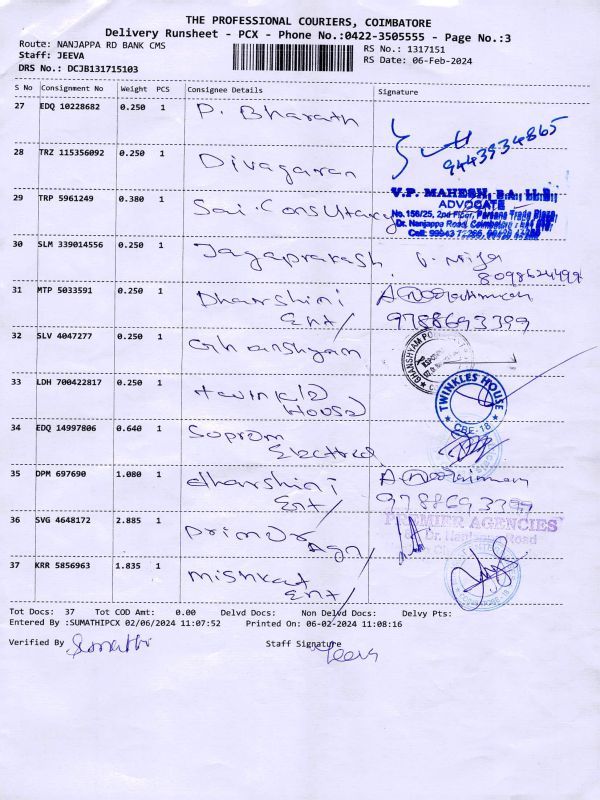 THE PROFESSIONAL COURIERS, COIMBATORE
Delivery Runsheet - PCX - Phone No.:0422-3505555 - Page No.:3
Route: NANJAPPA RD BANK CMS RS No.: 1317151
Staff: JEEVA RS Date: 06-Feb-2024
DRS No.: DCJB131715103
S No Consignment No Weight PCS Consignee Details Signature
27 EDQ 10228682 0.250 1 P. Bharath
9443934865
28 TRZ 115356092 0.250 1 Divagaran
29 TRP 5961249 0.380 1 Sai Consultancy V.P. MAHESH, B.A., LL.B.,
ADVOCATE
No.156/25, 2nd Floor,
Dr. Nanjappa Road, Coimbatore
30 SLM 339014556 0.250 1 Jagaprakash
8098624497
31 MTP 5033591 0.250 1 Dharshini
Ent/ 9788693399
32 SLV 4047277 0.250 1 Ghanshyam GHANSHYAM
33 LDH 700422817 0.250 1 House TWINKLES HOUSE
CBE-18
34 EDQ 14997806 0.640 1
35 DPM 697690 1.080 1 dharshini
Ent/ 9788693399
36 SVG 4648172 2.885 1 PREMIER AGENCIES
Dr. Nanjappa Road
37 KRR 5856963 1.835 1 mishkat
Ent/
Tot Docs: 37 Tot COD Amt: 0.00 Delvd Docs: Non Delvd Docs: Delvy Pts:
Entered By :SUMATHIPCX 02/06/2024 11:07:52 Printed On: 06-02-2024 11:08:16
Verified By Sumathi Staff Signature Jeeva